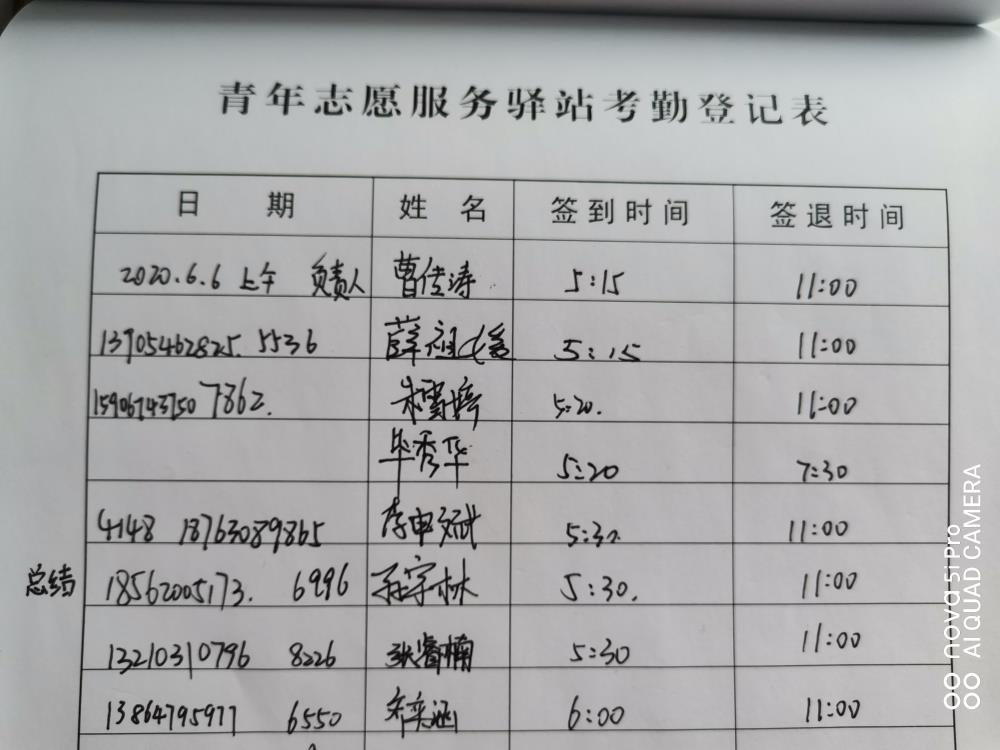 青年志愿服务驿站考勤登记表
日 期 姓 名 签到时间 签退时间
2020.6.6 上午 负责人 曹传涛 5:15 11:00
13905462825. 5536 薛祖 5:15 11:00
15906743750 7862. 5:20. 11:00
毕秀华 5:20 7:30
4148 18763089865 李申斌 5:30 11:00
总结 18562005173. 6996 孙宇林 5:30. 11:00
13210310796 8226 张睿楠 5:30 11:00
13864795977 6550 齐奕涵 6:00 11:00
nova 5i Pro
AI QUAD CAMERA